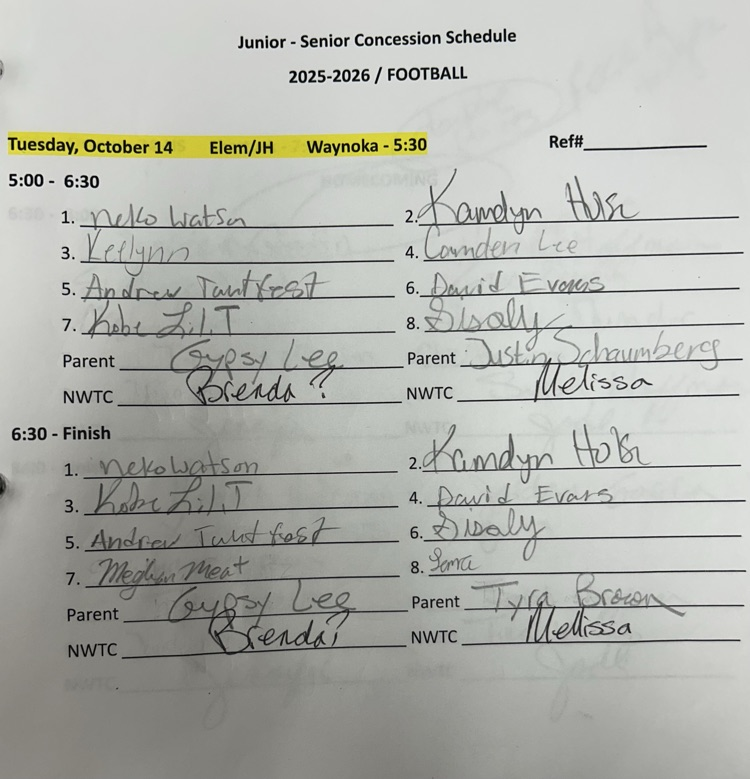 Junior - Senior Concession Schedule
2025-2026 / FOOTBALL
Tuesday, October 14 Elem/JH Waynoka - 5:30 Ref#
5:00 - 6:30
1. neko watson 2. Kamdyn
3. Keelynn 4. Camden Lee
5. Andrew 6. David Evans
7. Kobe Li.T 8.
Parent Gypsy Lee Parent Justin Schaumberg
NWTC Brenda? NWTC Melissa
6:30 - Finish
1. neko watson 2. Kamdyn
3. Kobe Li.T 4. David Evans
5. Andrew 6.
7. Meghan Meat 8.
Parent Gypsy Lee Parent Tyra Brown
NWTC Brenda? NWTC Melissa